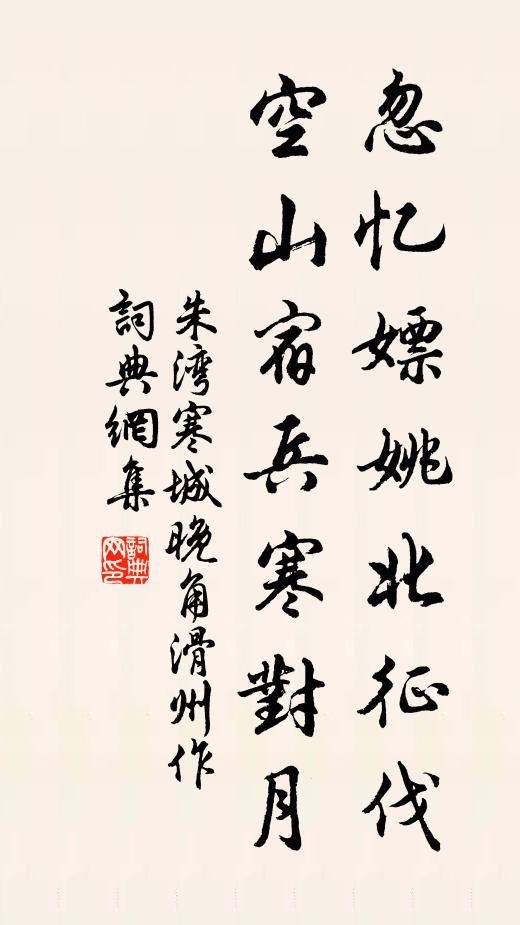 忽忆嫖姚北征伐
空山宿兵寒對月
朱湾寒城晚角滑州作
詞典網集
詞典网印